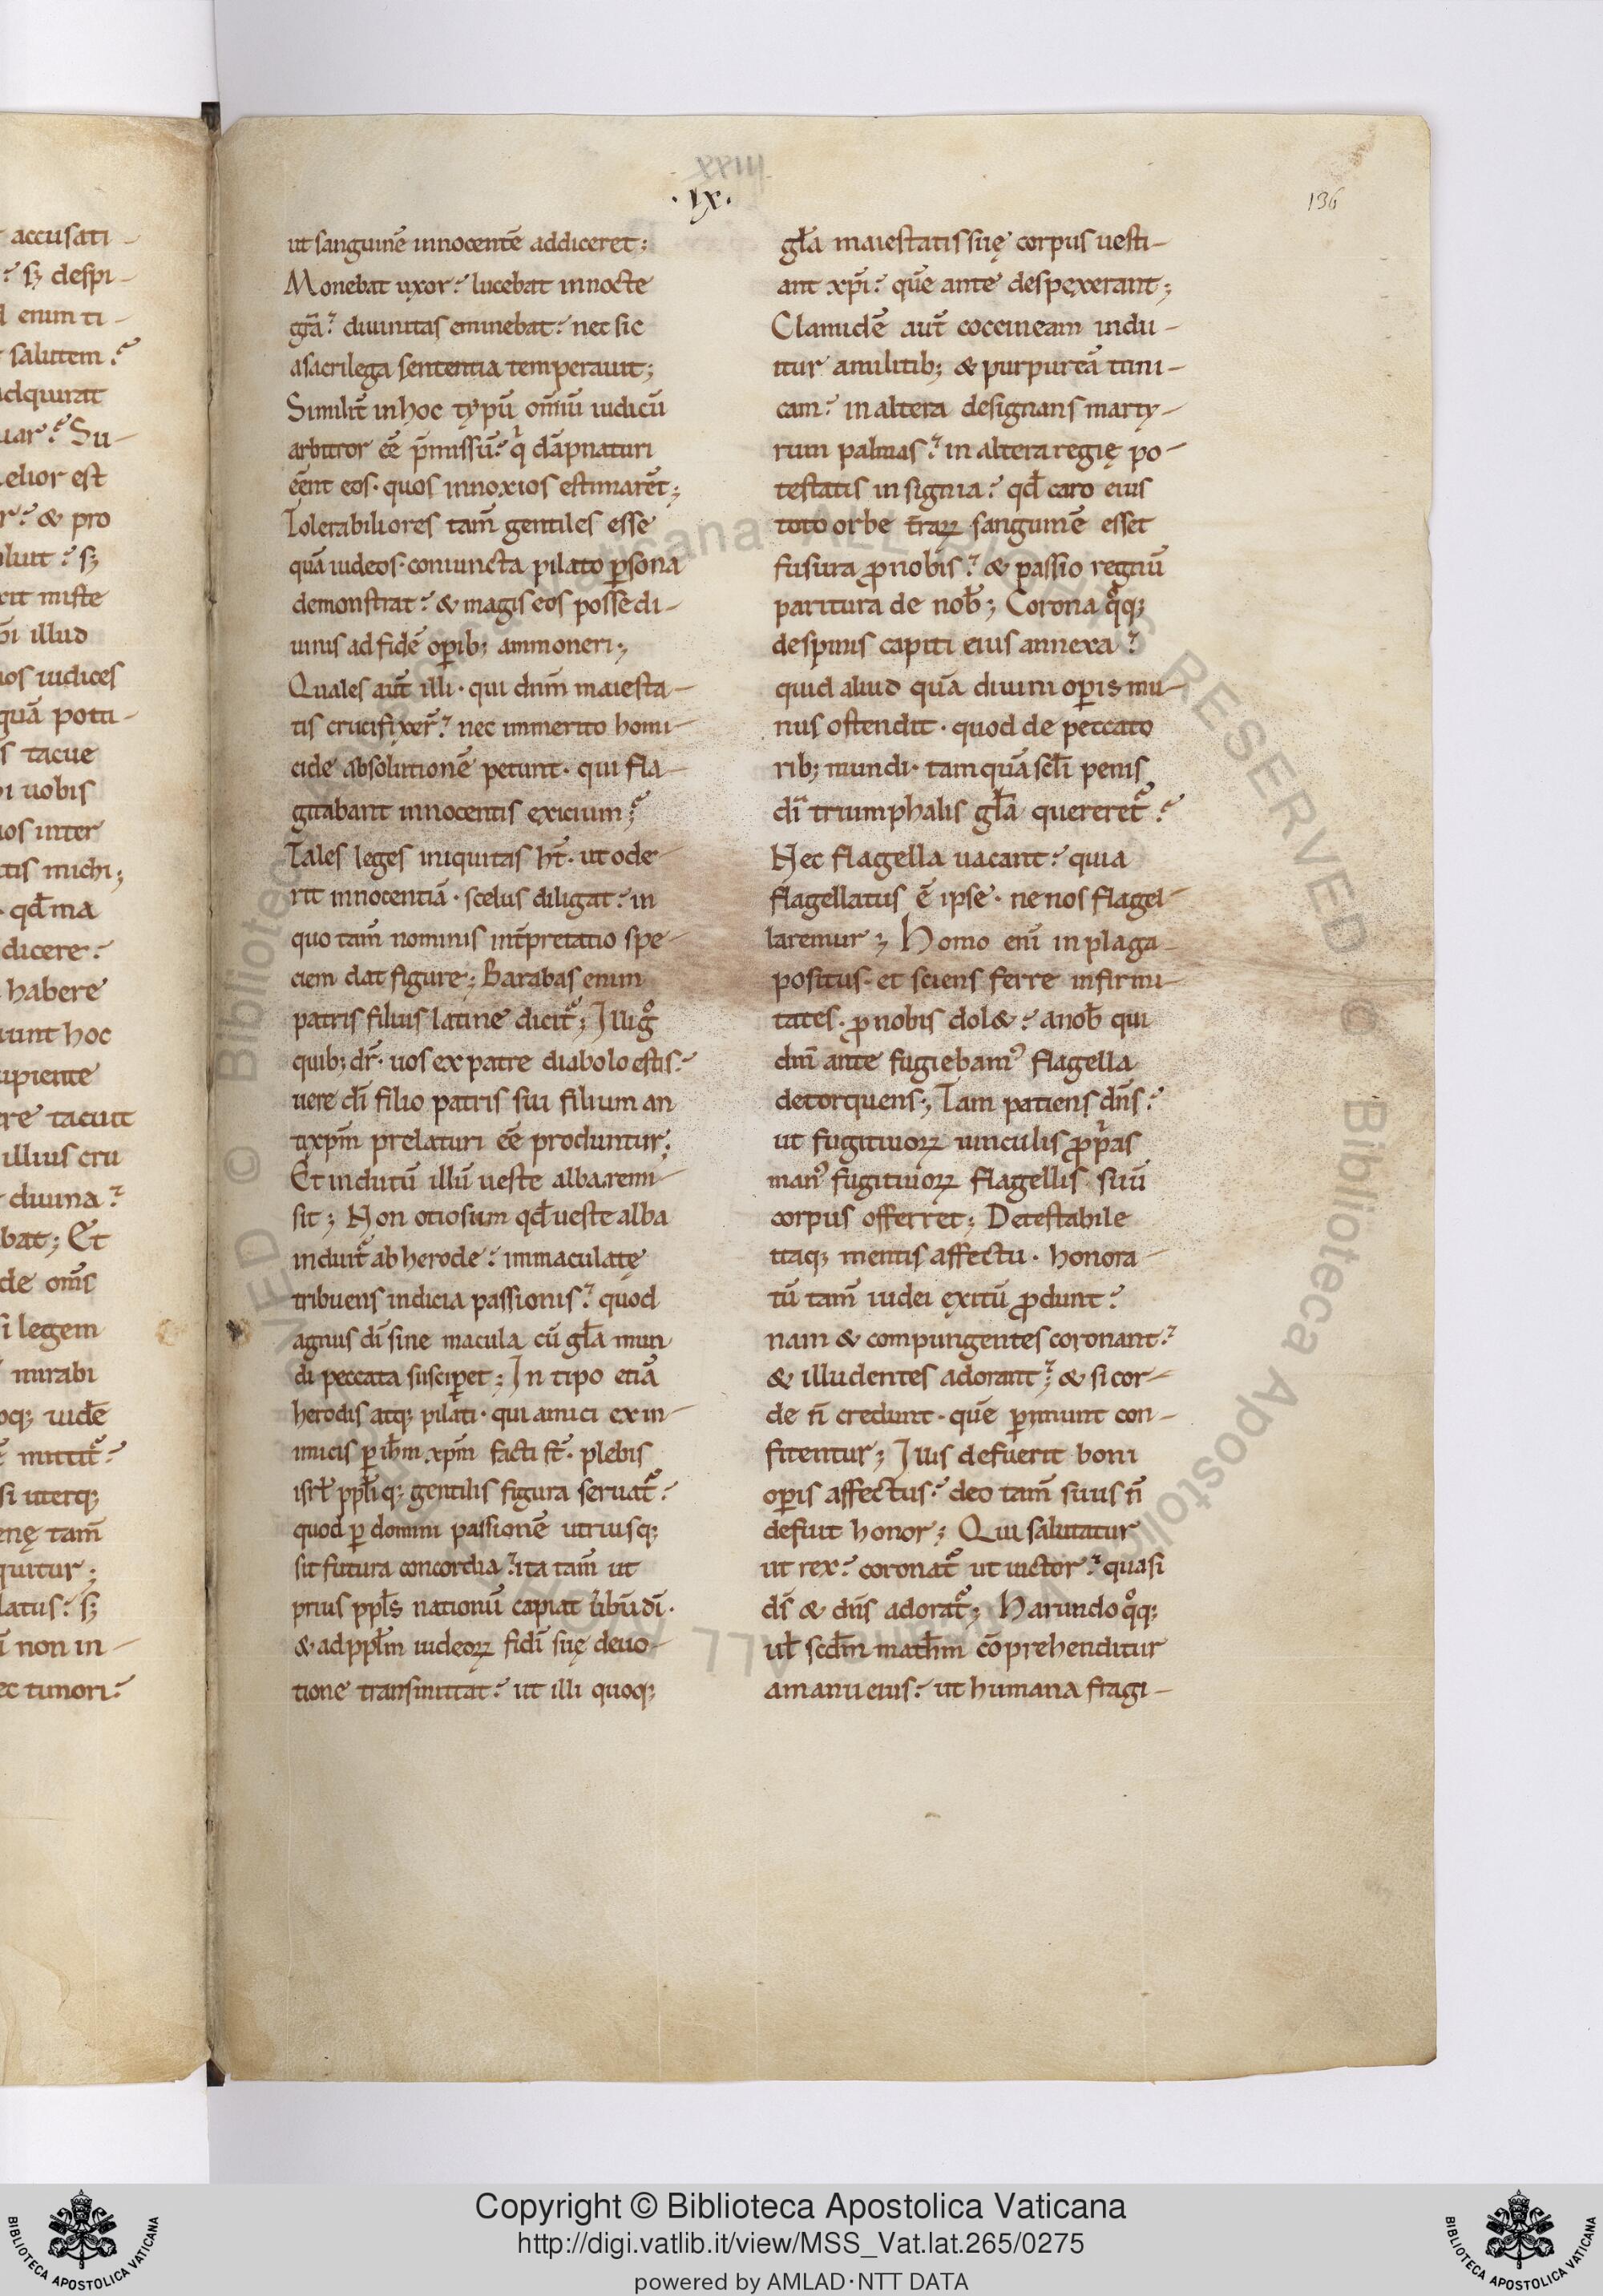 accusati-
:́ sꝫ despi-
enim ti-
salutem:́
adquirat
uar:́ Su-
elior est
r:́ & pro
luit:́ sꝫ
rit miste
illud
ios iudices
quā poti-
s tacue
i uobis
ios inter
ctis michi;
qđ ma
dicere:́
habere
iunt hoc
ipiente
re tacuit
illius cru
diuina:́
bat; Et
de om̄s
si legem
mirabi
oqꝫ uidē
mittit᷑:́
si uterqꝫ
enę tam̄
quitur;
latus:́ sꝫ
non in-
ec timori:́
XXIIII
·IX·
136
ut sanguinē innocentē addiceret;
Monebat uxor:́ lucebat innocte
gr̄a:́ diuinitas eminebat:́ nec sic
asacrilega sententia temperauit;
Similit᷑ inhoc typū om̄iū iudicū
arbitror eē p̄missū:́ qͥ dāpnaturi
eēnt eos· quos innoxios estimarēt;
Tolerabiliores tam̄ gentiles esse
quā iudeos· coniuncta pilato ꝑsona
demonstrat:́ & magis eos posse di-
uinis ad fidē oꝑibꝫ ammoneri;
Quales aut̄ illi· qui dnm̄ maiesta-
tis crucifixer̄:́ nec immerito homi-
cide absolutionē petunt· qui fla-
gitabant innocentis exicium;
Tales leges iniquitas ht̄· ut ode-
rit innocentiā· scelus diligat:́ in
quo tam̄ nominis int̄pretatio spe-
ciem dat figure; Barabas enim
patris filius latine dicit᷑; Illi gͦ
quibꝫ dr̄· uos ex patre diabolo estis:́
uere dī filio patris sui filium an
tixpm̄ prelaturi eē produntur;
Et indutū illū ueste alba remi-
sit; Non otiosum qđ ueste alba
induit᷑ ab herode:́ immaculatę
tribuens indicia passionis:́ quod
agnus dī sine macula cū gl̄a mun
di peccata susciꝑet; In tipo etiā
herodis atqꝫ pilati· qui amici ex in-
imicis ꝑ ih̄m xpm̄ facti st̄· plebis
isrl̄ ppl̄iqꝫ gentilis figura seruat᷑:́
quod ꝑ domini passionē utriusqꝫ
sit futura concordia:́ ita tam̄ ut
prius ppl̄s nationū capiat ūbū dī·
& ad ppl̄m iudeoꝝ fidī suę deuo-
tione transmittat:́ ut illi quoqꝫ
gl̄a maiestatis suę corpus uesti-
ant xpi̅:́ quē ante despexerant;
Clamidē aut̄ coccineam indu-
itur amilitibꝫ & purpureā tuni-
cam:́ in altera designans marty-
rum palmas:́ in altera regię po-
testatis insignia:́ qđ caro eius
toto orbe t̄raꝝ sanguinē esset
fusura ꝓ nobis:́ & passio regnū
paritura de nob̄; Corona qͦqꝫ
despinis capiti eius annexa:́
quid aliud quā diuini oꝑis mu-
nus ostendit· quod de peccato
ribꝫ mundi· tamquā scl̄i penis
dī triumphalis gl̄a quereret᷑:́
Nec flagella uacant:́ quia
flagellatus ē ipse· ne nos flagel-
laremur; Homo enī in plaga
positus· et sciens ferre infirmi-
tates· ꝓ nobis dol&:́ anob̄ qui
dnī ante fugiebamꝰ flagella
detorquens; Iam patiens dn̄s:́
ut fugitiuoꝝ uinculis ꝓpͥas
manꝰ fugitiuoꝝ flagellis suū
corpus offerret; Detestabile
itaqꝫ mentis affectu· honora-
tū tam̄ iudei exitū ꝓdunt:́
nam & compungentes coronant:́
& illudentes adorant:́ & si cor-
de n̄ credunt· quē ꝑimunt con-
fitentur; Iuis defuerit boni
oꝑis affectus:́ deo tam̄ suus n̄
defuit honor; Qui salutatur
ut rex:́ coronat᷑ ut uictor:́ quasi
dī & dn̄s adorat᷑; Harundo qͦqꝫ
ul̄ scdm̄ math̄m cōprehenditur
amanu eius:́ ut humana fragi-
Copyright © Biblioteca Apostolica Vaticana
http://digi.vatlib.it/view/MSS_Vat.lat.265/0275
powered by AMLAD·NTT DATA
BIBLIOTECA APOSTOLICA VATICANA
BIBLIOTECA APOSTOLICA VATICANA